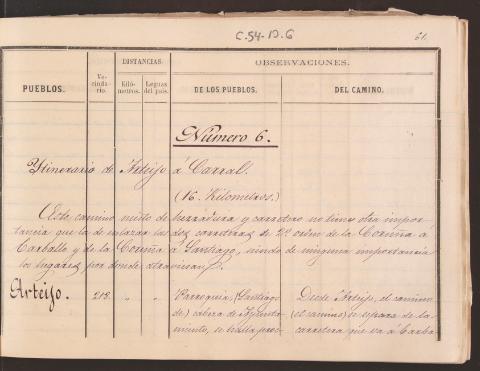 C-54-D.6
61.
DISTANCIAS.
OBSERVACIONES.
PUEBLOS.
Ve-
cinda-
rio.
Kiló-
metros.
Leguas
del país.
DE LOS PUEBLOS.
DEL CAMINO.
Número 6.
Ytinerario de Arteijo á Carral.
(16. Kilometros.)
Este camino misto de herradura y carretero no tiene otra impor-
tancia que la de enlazar las dos carreteras de 2º orden de la Coruña á
Carballo y de la Coruña á Santiago, siendo de ninguna importancia
los lugares por donde atraviesan.
Arteijo. 218. " " Parroquia, (Santiago Desde Arteijo, el camino
de) cabeza de Ayunta- (el camino) se separa de la
miento, se halla proc- carretera que va á Carba-